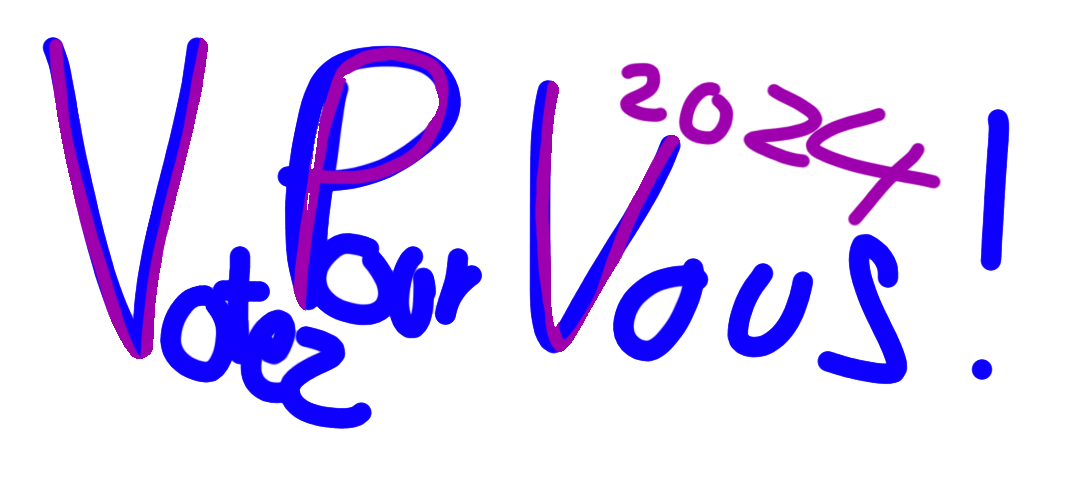 Votez Pour Vous !
2024